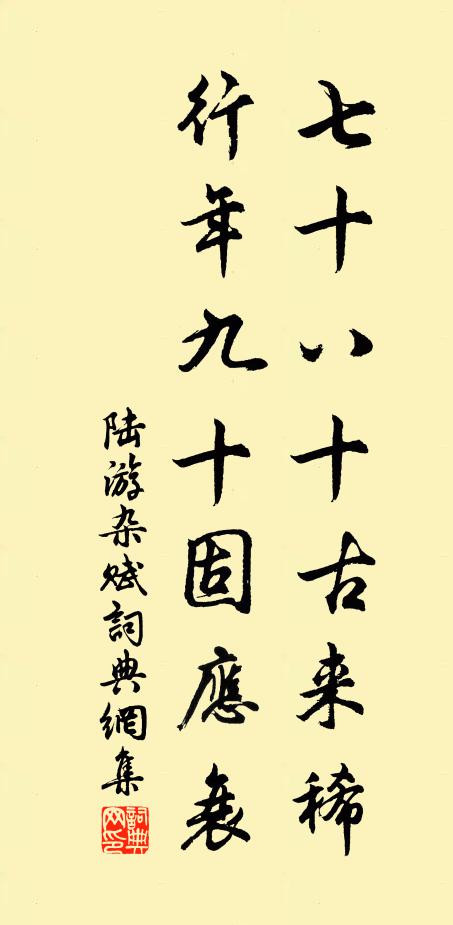 七十八十古来稀
行年九十固應衰
陆游杂赋詞典網集
詞典
网印